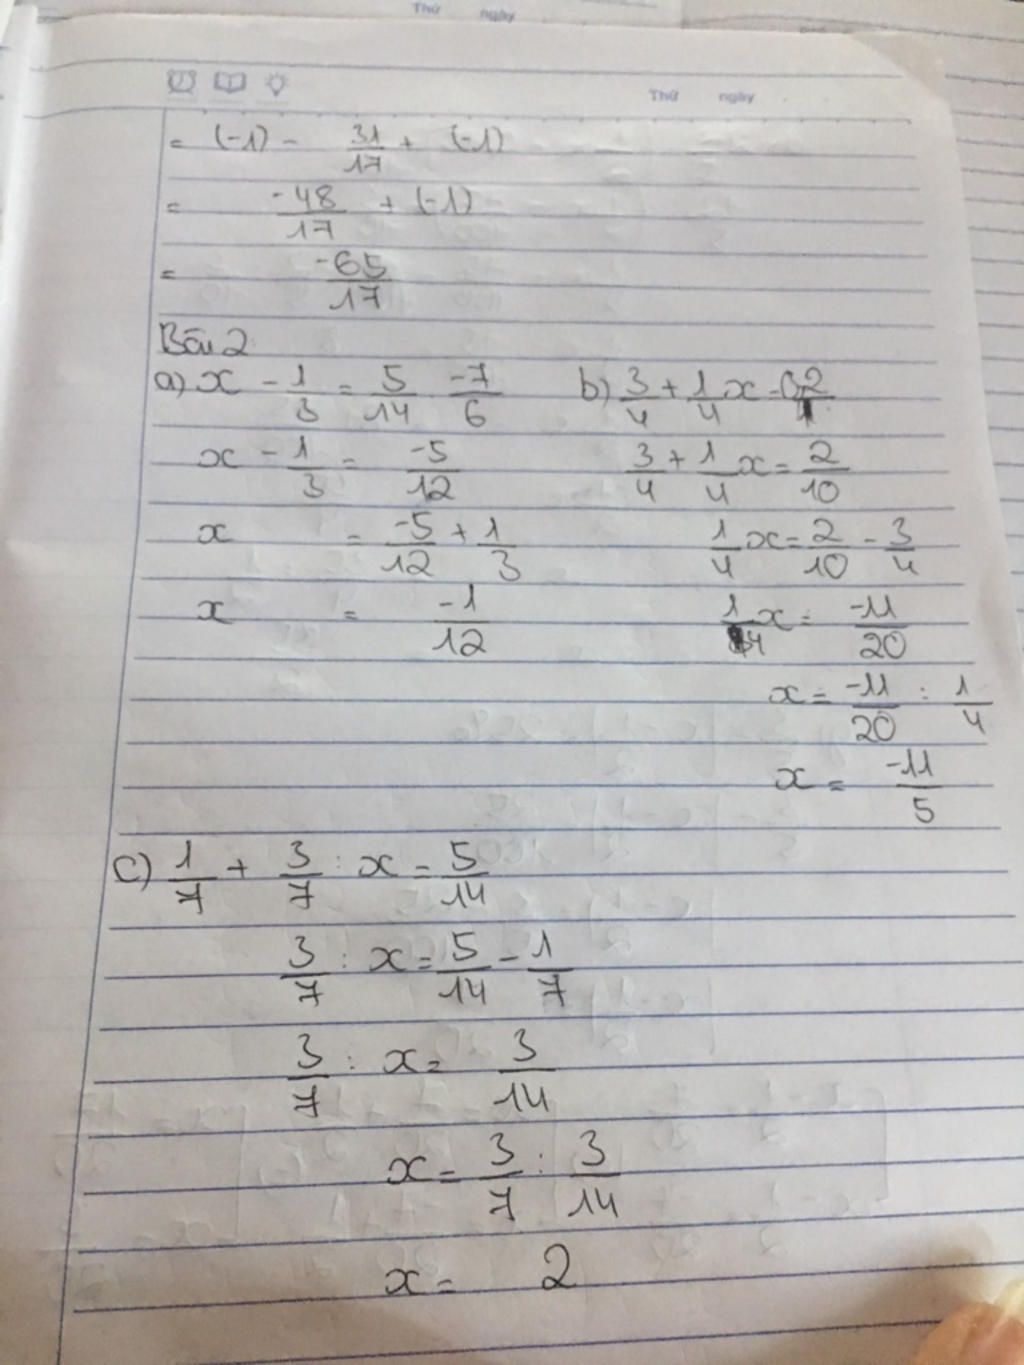 Thứ ngày
Thứ ngày
= (-1) - 31/17 + (-1)
= -48/17 + (-1)
= -65/17
Bài 2
a) x - 1/3 = 5/14 . -7/6
x - 1/3 = -5/12
x = -5/12 + 1/3
x = -1/12
b) 3/4 + 1/4 x = 0,2
3/4 + 1/4 x = 2/10
1/4 x = 2/10 - 3/4
1/4 x = -11/20
x = -11/20 : 1/4
x = -11/5
c) 1/7 + 3/7 : x = 5/14
3/7 : x = 5/14 - 1/7
3/7 : x = 3/14
x = 3/7 : 3/14
x = 2